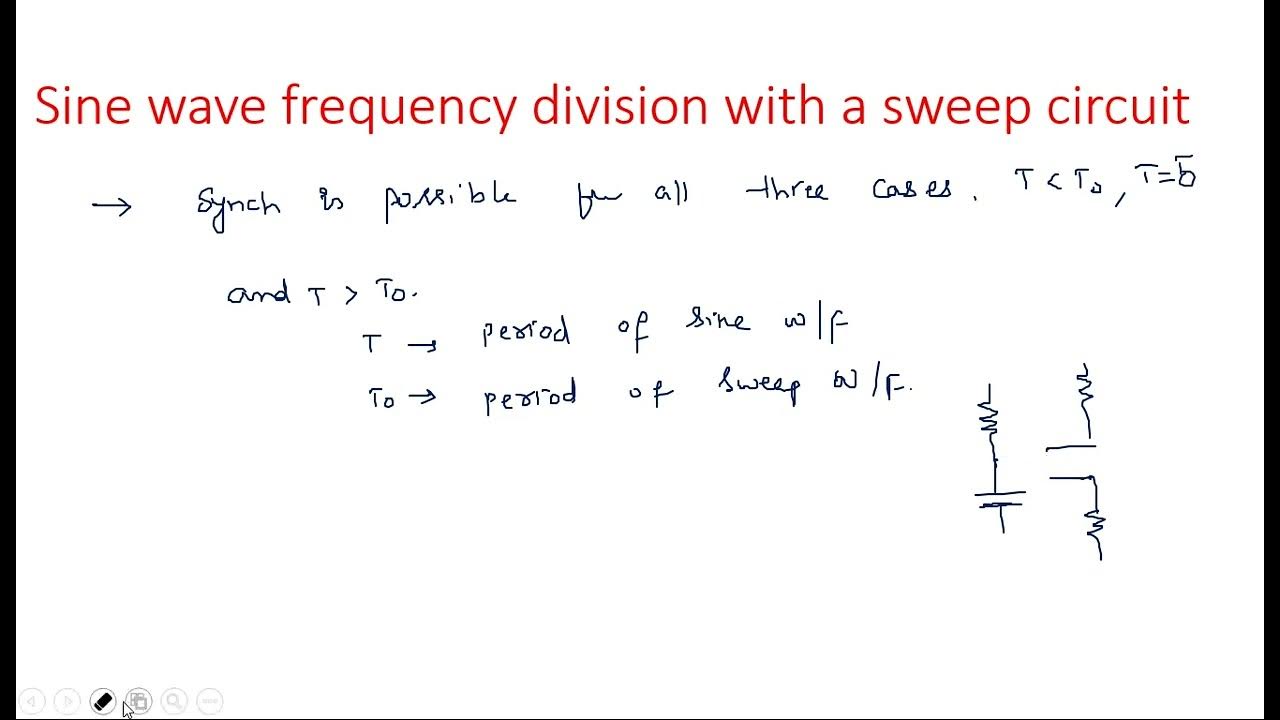 Sine wave frequency division with a sweep circuit
→ Synch is possible for all three cases. T < To, T = To
and T > To.
T → period of sine w/F
To → period of sweep w/F.